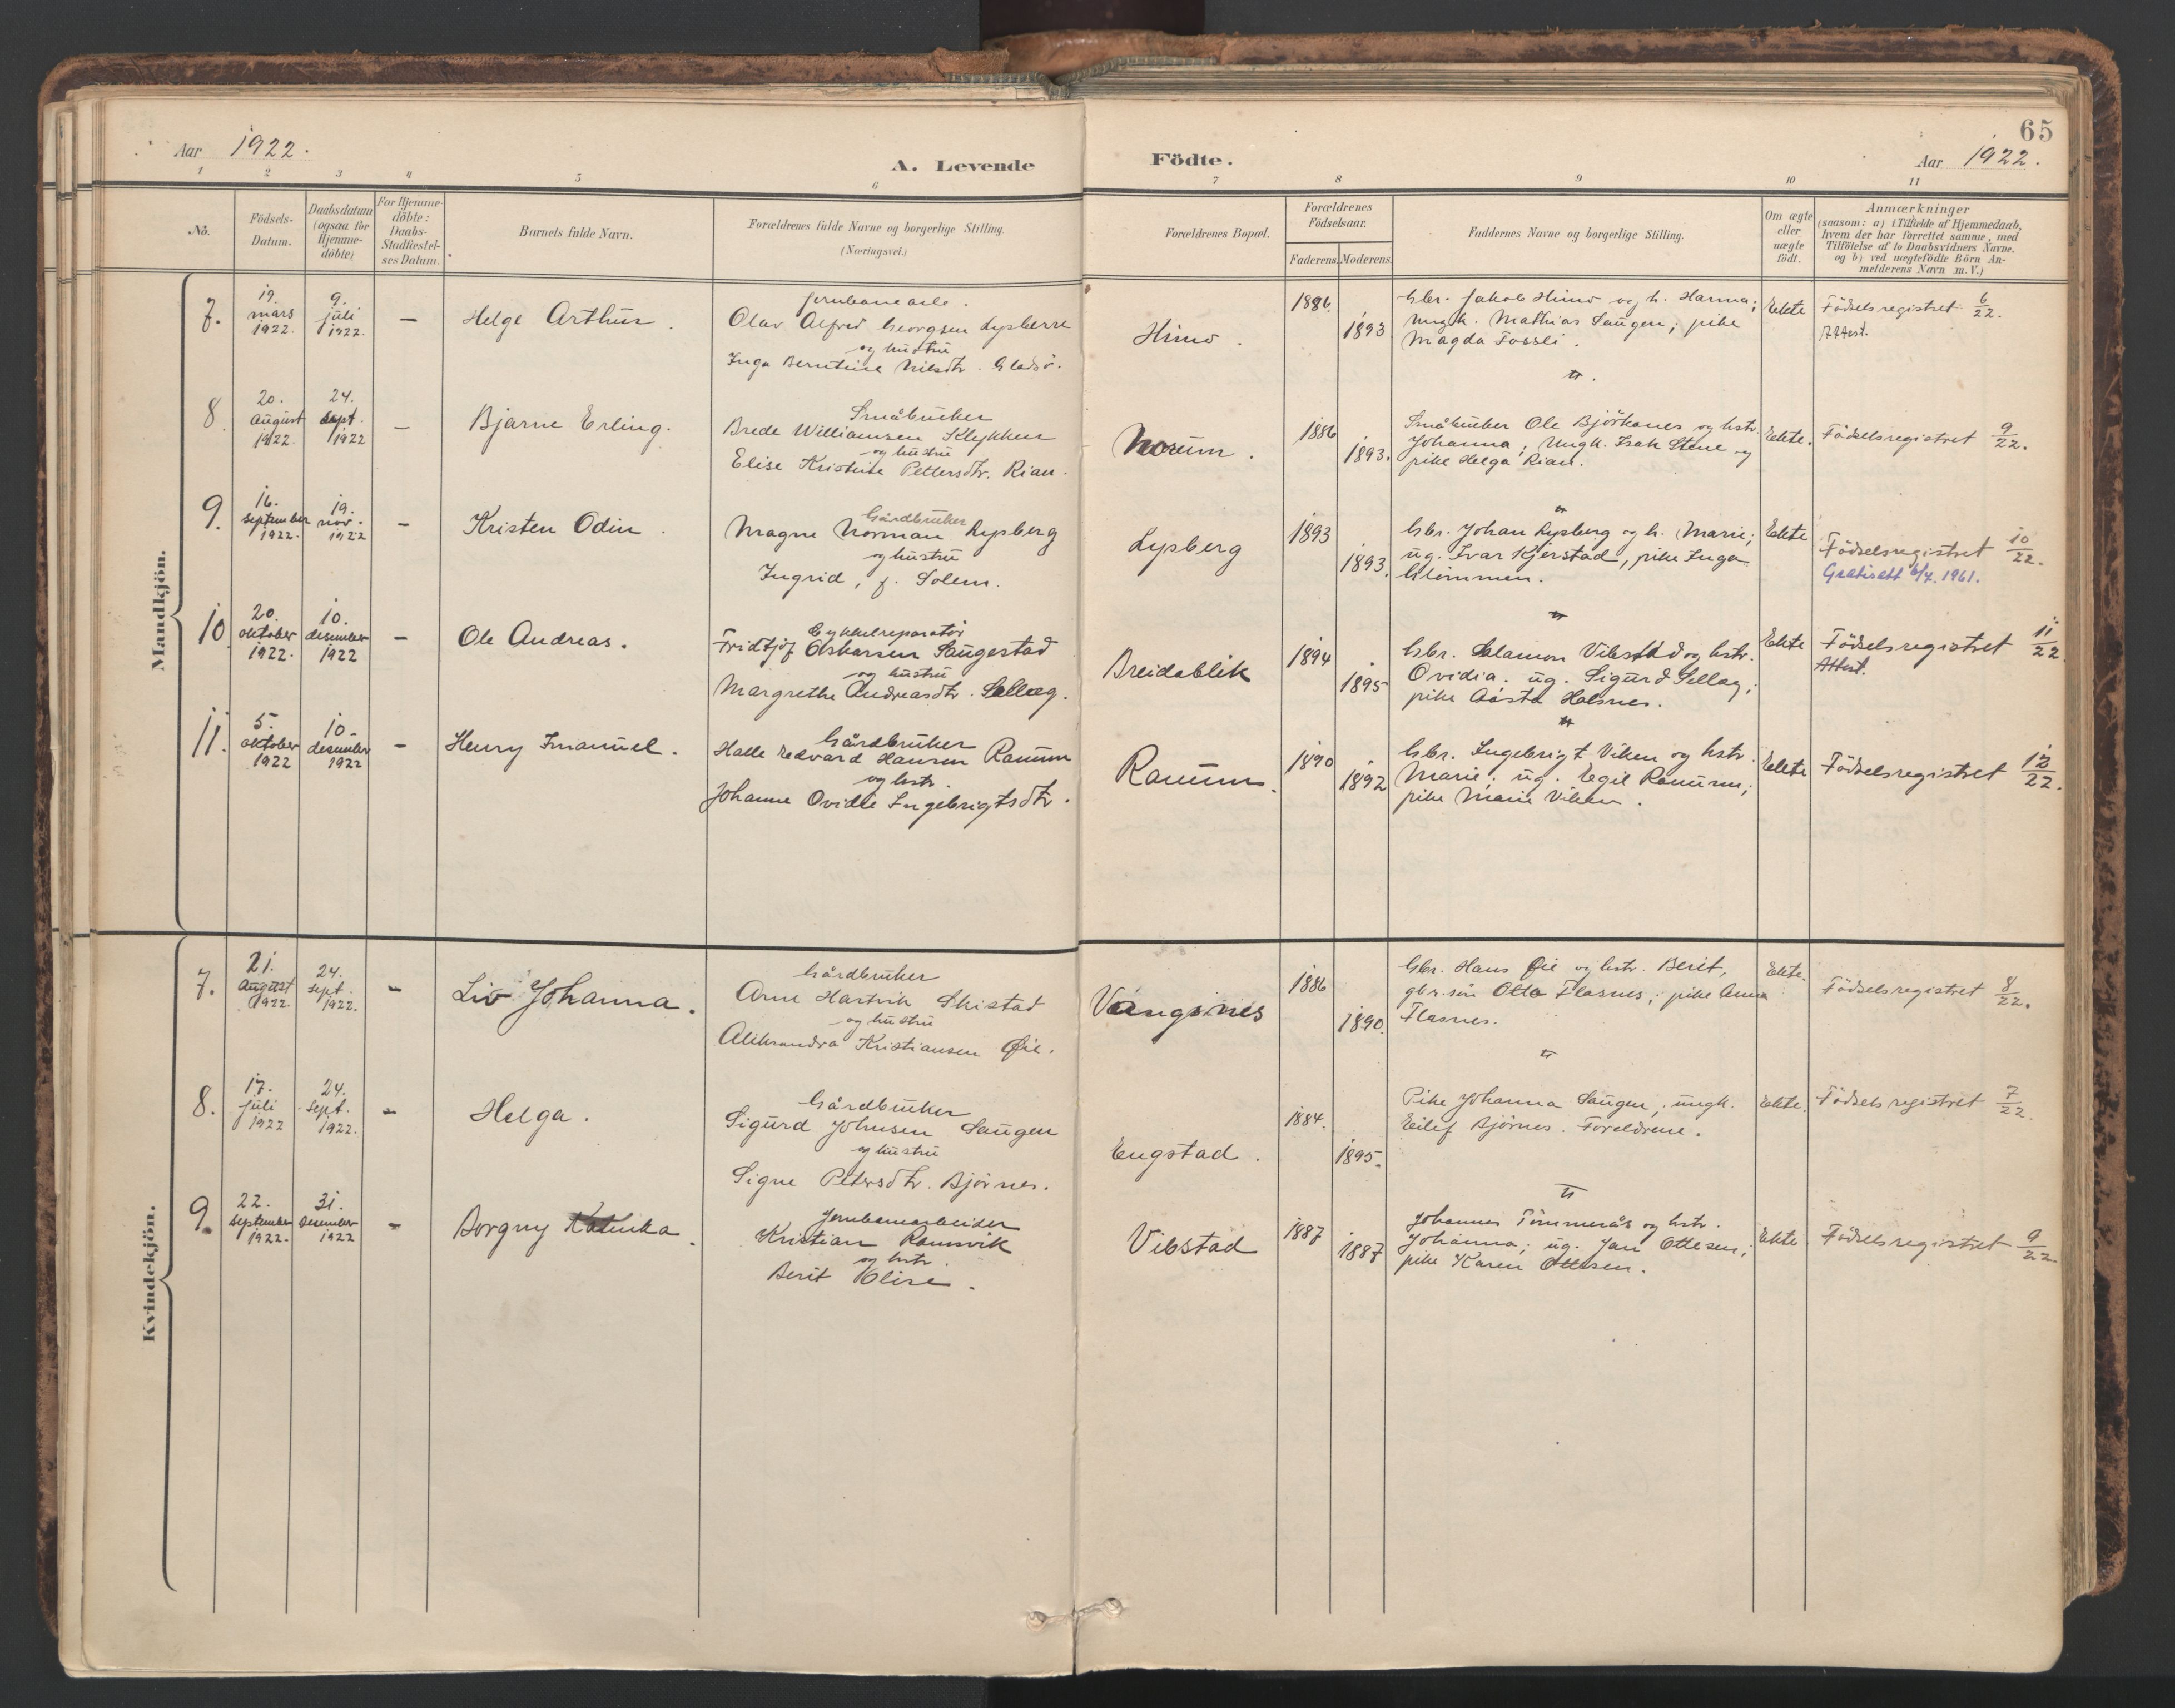 65
Aar 1922.
A. Levende
Födte.
Aar 1922.
1 2 3 4 5 6 7 8 9 10 11
No.
Födsels-
Datum.
Daabsdatum
(ogsaa for
Hjemme-
döbte)
For Hjemme-
döbte:
Daabs-
Stadfæstel-
ses Datum.
Barnets fulde Navn.
Forældrenes fulde Navne og borgerlige Stilling.
(Næringsvei.)
Forældrenes Bopæl.
Forældrenes
Födselsaar.
Faderens.
Moderens.
Faddernes Navne og borgerlige Stilling.
Om ægte
eller
uægte
födt.
Anmærkninger
(saasom: a) i Tilfælde af Hjemmedaab,
hvem der har forrettet samme, med
Tilföielse af to Daabsvidners Navne.
og b) ved uægtefödte Börn An-
melderens Navn m.V.)
Mandkjön.
7.
19.
mars
1922.
9.
juli
1922.
–
Helge Arthur.
Jernbanearb.
Olav Alfred Georgsen Lysberre
og hustru
Inga Berntine Nilsdtr. Gladsö.
Himo.
1886.
1893
Gbr. Jakob Himo og h. Hanna;
ungk. Mathias Saugen; pike
Magda Fossli.
Ekte
Födselsregistret 6/22.
Attest.
8.
20.
august
1922.
24.
sept.
1922
–
Bjarne Erling.
Småbruker
Brede Williamsen Klykken
og hustru
Elise Kristine Pettersdtr. Rian.
Norum.
1886
1893.
Småbruker Ole Björkanes og hstr.
Johanna; Ungk. Isak Stene og
pike Helga Rian.
Ekte.
Födselsregistret 9/22.
9.
16.
september
1922.
19.
nov.
1922
–
Kristen Odin.
Gårdbruker
Magne Norman Lysberg
og hustru
Ingrid, f. Solem.
Lysberg
1893
1893.
Gbr. Johan Lysberg og h. Marie;
ug. Ivar Kjerstad, pike Inga
Glömmen.
Ekte
Födselsregistret 10/22.
Gratisatt 6/4. 1961.
10
20.
oktober
1922.
10.
desember
1922
–
Ole Andreas.
Cykkelreparatör
Fridtjof Oskarsen Saugestad
og hustru
Margrethe Andreasdtr. Sellæg.
Breidablik
1894
1895
Gbr. Salamon Vibstad og hstr.
Ovidia. ug. Sigurd Sellæg;
pike Aasta Halsnes.
Ekte
Födselsregistret 11/22.
Attest.
11.
5.
oktober
1922
10.
desember
1922
–
Henry Imanuel.
Gårdbruker
Halle Edvard Hansen Ranum
og hstr.
Johanne Ovidie Ingebrigtsdtr.
Ranum.
1890
1892
Gbr. Ingebrigt Viken og hstr.
Marie. ug. Egil Ranum;
pike Marie Viken.
Ekte
Födselsregistret 12/22.
Kvindekjön.
7.
21.
August
1922.
24.
sept.
1922.
–
Liv Johanna.
Gårdbruker
Arne Hartvik Skistad
og hustru
Aleksandra Kristiansen Øie.
Vangsnes
1886
1890.
Gbr. Hans Øie og hstr. Berit,
gbr. sön Otto Flasnes; pike Anna
Flasnes.
Ekte
Födselsregistret 8/22.
8.
17.
juli
1922
24.
sept.
1922.
–
Helga.
Gårdbruker
Sigurd Johnsen Saugen
og hustru
Signe Petersdtr. Björnes.
Engstad.
1884.
1895.
Pike Johanna Saugen, ungk.
Eilif Björnes. Foreldrene.
Ekte.
Födselsregistret 7/22.
9.
22.
september
1922.
31.
desember
1922
–
Borgny Katinka.
Jernbanearbeider
Kristian Ramsvik
og hstr.
Berit Elise.
Vibstad
1887
1887
Johannes Tömmerås og hstr.
Johanna; ug. Jan Ottesen;
pike Karen Ottesen.
Ekte
Födselsregistret 9/22.